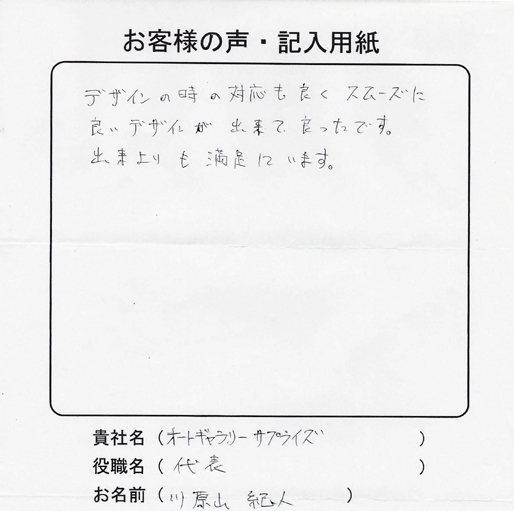 お客様の声・記入用紙
デザインの時の対応も良くスムーズに
良いデザインが出来て良ったです。
出来上りも満足しています。
貴社名（オートギャラリーサプライズ）
役職名（代表）
お名前（川原山 紀人）